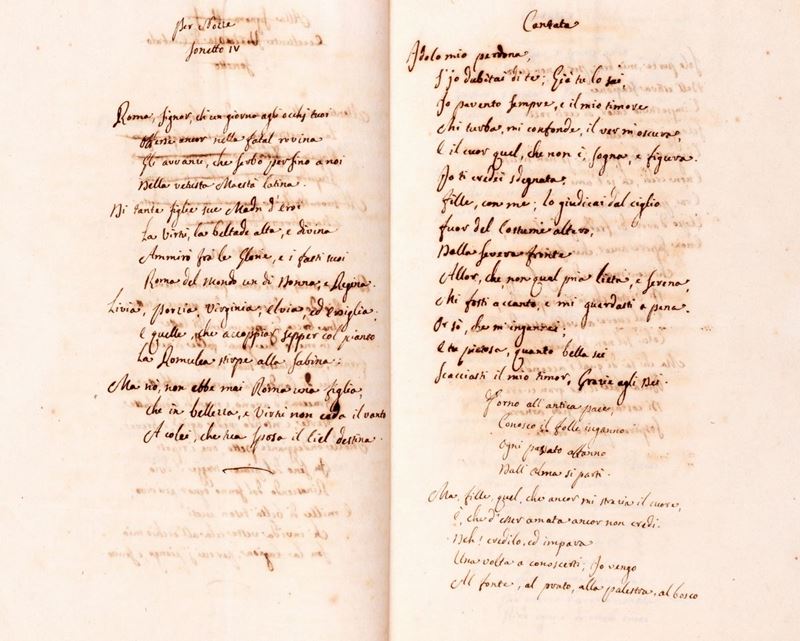 Per Nozze
Sonetto IV
Roma, Signor, che un giorno agli occhj tuoi
ancor nella fatal rovina
Gli avvanzi, che serbò persino a noi
Della vetusta Maestà latina.
Di tante figlie sue Madri d'Eroi
La virtù, la beltade alta, e divina
Ammirò frà le Glorie, e i fasti suoi
Roma del Mondo un dì Donna, e Regina.
Livia, Porzia, Virginia, Elvia, ed Ersiglia,
E quelle, che accoppiar sepper col pianto
La Romulea stirpe alla Sabina:
Ma nò, non ebbe mai Roma una figlia,
Che in bellezza, e Virtù non ceda il vanto
A colei, che tua sposa il Ciel destina.
Cantata
Idolo mio perdona,
S'io dubitai di te; Già tu lo sai,
Io pavento sempre, e il mio timore
Mi turba, mi confonde, il ver m'oscura,
E il cuor quel, che non è, sogna, e figura.
Io ti credei sdegnata,
Fille, con me; lo giudicai dal ciglio
Fuor del Costume altero,
Dalla severa fronte
Allor, che non qual pria lieta, e serena,
Mi fosti accanto, e mi guardasti a pena.
Or sò, che m'ingannai;
E tu pietosa, quanto bella sei
Scacciasti il mio timor, Grazie agli Dei.
Torno all'antica pace,
Conosco il folle inganno
Ogni passato affanno
Dall'Alma si partì.
Ma, Fille, quel, che ancor mi strazia il cuore,
È, che d'esser amata ancor non credi.
Deh! credilo, ed impara
Una volta a conoscerti; Io vengo
Al fonte, al prato, alla palestra, al bosco